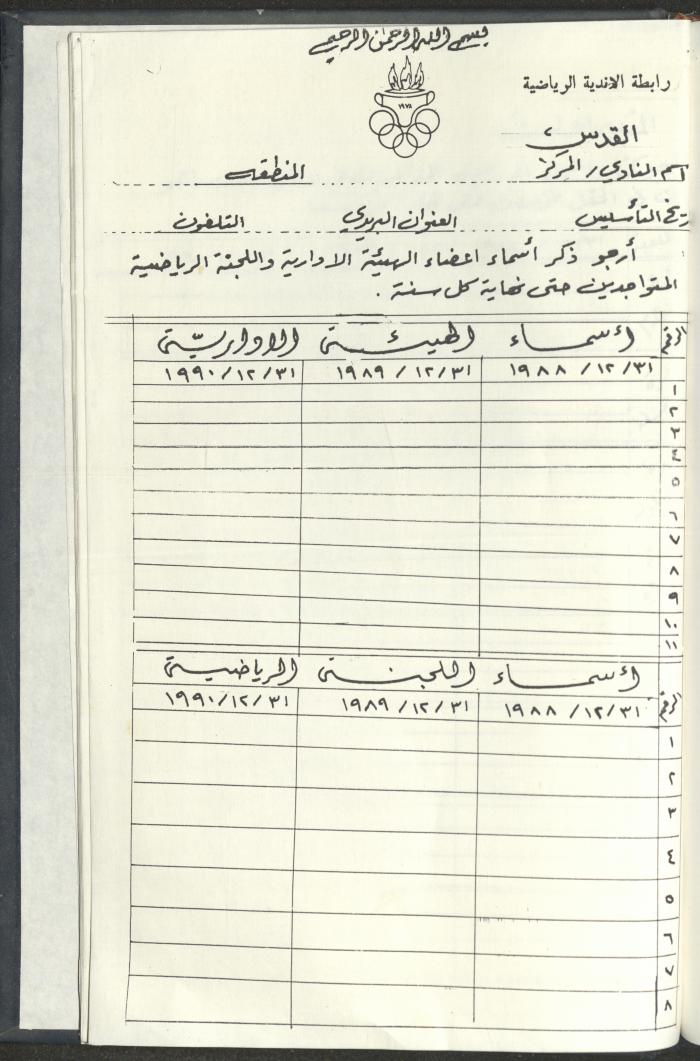 بسم الله الرحمن الرحيم
رابطة الاندية الرياضية
١٩٧٨
القدس
اسم النادي / المركز المنطقه
ريخ التأسيس العنوان البريدي التلفون
أرجو ذكر أسماء اعضاء الهيئة الادارية واللجنة الرياضية
المتواجدين حتى نهاية كل سنة .
الرقم أسماء الهيئة الاداريّة
٣١/١٢/١٩٨٨ ٣١/١٢/١٩٨٩ ٣١/١٢/١٩٩٠
١
٢
٣
٤
٥
٦
٧
٨
٩
١٠
١١
الرقم أسماء اللجنة الرياضية
٣١/١٢/١٩٨٨ ٣١/١٢/١٩٨٩ ٣١/١٢/١٩٩٠
١
٢
٣
٤
٥
٦
٧
٨